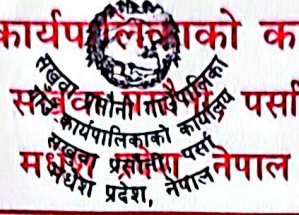 कार्यपालिकाको का
सखुवा प्रसौनी पर्सा
मधेश प्रदेश नेपाल
सखुवा प्रसौनी गाउँपालिका
गाउँ कार्यपालिकाको कार्यालय
सखुवा प्रसौनी, पर्सा
मधेश प्रदेश, नेपाल